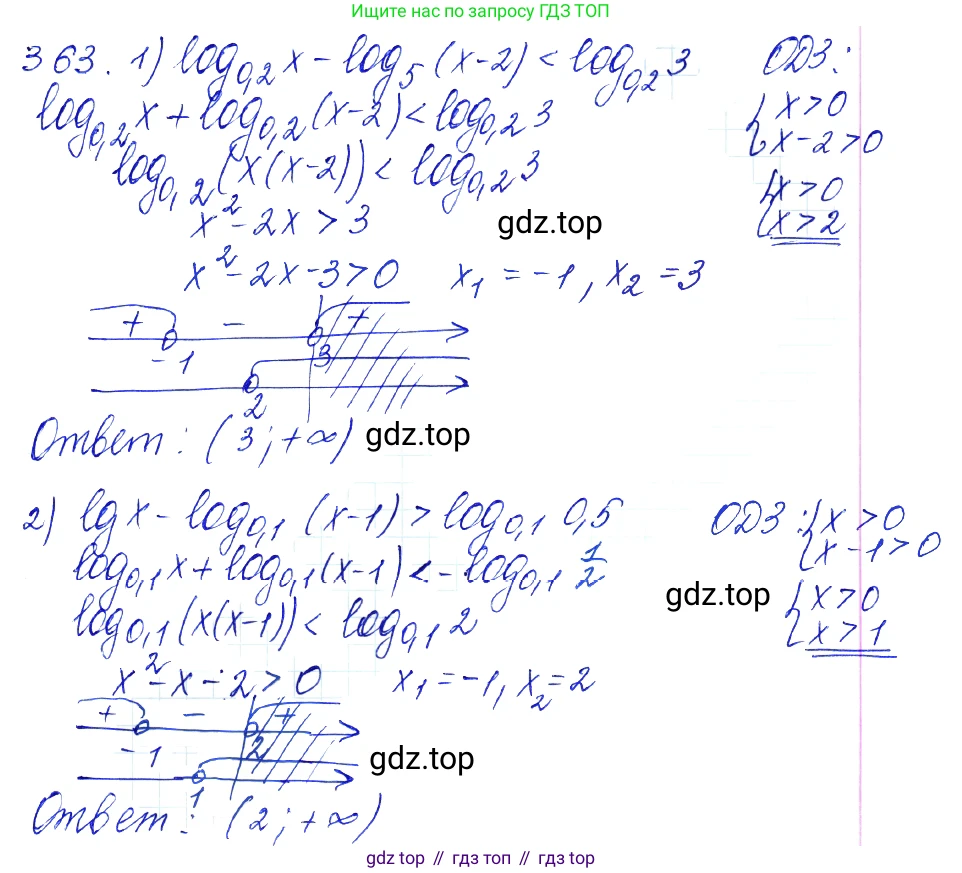 Ищите нас по запросу ГДЗ ТОП
363. 1) log₀,₂ x - log₅ (x-2) < log₀,₂ 3
ОДЗ:
log₀,₂ x + log₀,₂ (x-2) < log₀,₂ 3
{ x > 0
{ x - 2 > 0
log₀,₂ (x(x-2)) < log₀,₂ 3
{ x > 0
{ x > 2
x² - 2x > 3
gdz.top
x² - 2x - 3 > 0   x₁ = -1, x₂ = 3
+ - +
-1 3
2
Ответ: (3; +∞)
gdz.top
2) lg x - log₀,₁ (x-1) > log₀,₁ 0,5
ОДЗ: { x > 0
{ x - 1 > 0
log₀,₁ x + log₀,₁ (x-1) < - log₀,₁ 1/2
gdz.top
{ x > 0
{ x > 1
log₀,₁ (x(x-1)) < log₀,₁ 2
x² - x - 2 > 0   x₁ = -1, x₂ = 2
+ - +
-1 2
gdz.top
1
Ответ: (2; +∞)
gdz top // гдз топ // gdz top